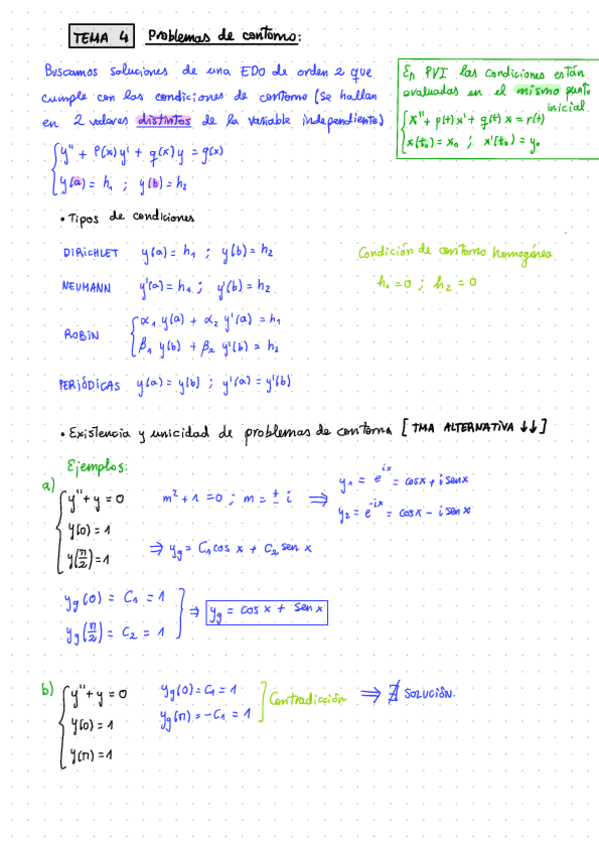 TEMA 4 Problemas de contorno:
Buscamos soluciones de una EDO de orden 2 que
cumple con las condiciones de contorno (se hallan
en 2 valores distintos de la variable independiente)
{ y'' + P(x)y' + q(x)y = g(x)
y(a) = h₁ ; y(b) = h₂
En PVI las condiciones están
evaluadas en el mismo punto
inicial
{ x'' + p(t)x' + q(t)x = r(t)
x(t₀) = x₀ ; x'(t₀) = y₀
• Tipos de condiciones
DIRICHLET y(a) = h₁ ; y(b) = h₂
NEUMANN y'(a) = h₁ ; y'(b) = h₂
ROBIN { α₁ y(a) + α₂ y'(a) = h₁
β₁ y(b) + β₂ y'(b) = h₂
PERIÓDICAS y(a) = y(b) ; y'(a) = y'(b)
Condición de contorno homogénea
h₁ = 0 ; h₂ = 0
• Existencia y unicidad de problemas de contorno [TMA ALTERNATIVA ↓↓]
Ejemplos:
a) { y'' + y = 0
y(0) = 1
y(π/2) = 1
m² + 1 = 0 ; m = ± i ⇒
y₁ = e^{ix} = cos x + i sen x
y₂ = e^{-ix} = cos x - i sen x
⇒ y_g = C₁ cos x + C₂ sen x
y_g(0) = C₁ = 1
y_g(π/2) = C₂ = 1 } ⇒ y_g = cos x + sen x
b) { y'' + y = 0
y(0) = 1
y(π) = 1
y_g(0) = C₁ = 1
y_g(π) = -C₁ = 1 } Contradicción ⇒ ∄ SOLUCIÓN.